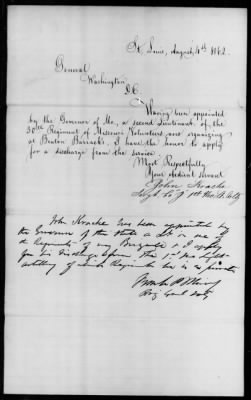 St. Louis, August 4th 1862.
General,
Washington,
D.C.
Having been appointed
by the Governor of Mo., a second Lieutenant of the
30th Regiment of Missouri Volunteers, now organizing
at Benton Barracks, I have the honor to apply
for a discharge from the service.
Most Respectfully
Your obedient servant
John
1st Mo.
John has been appointed by
the Governor of this State a Lt in one of
the Regiments of my Brigade & I apply
for his discharge from the 1st Mo light
artillery of which Regiment he is a private
Brig Genl Vols